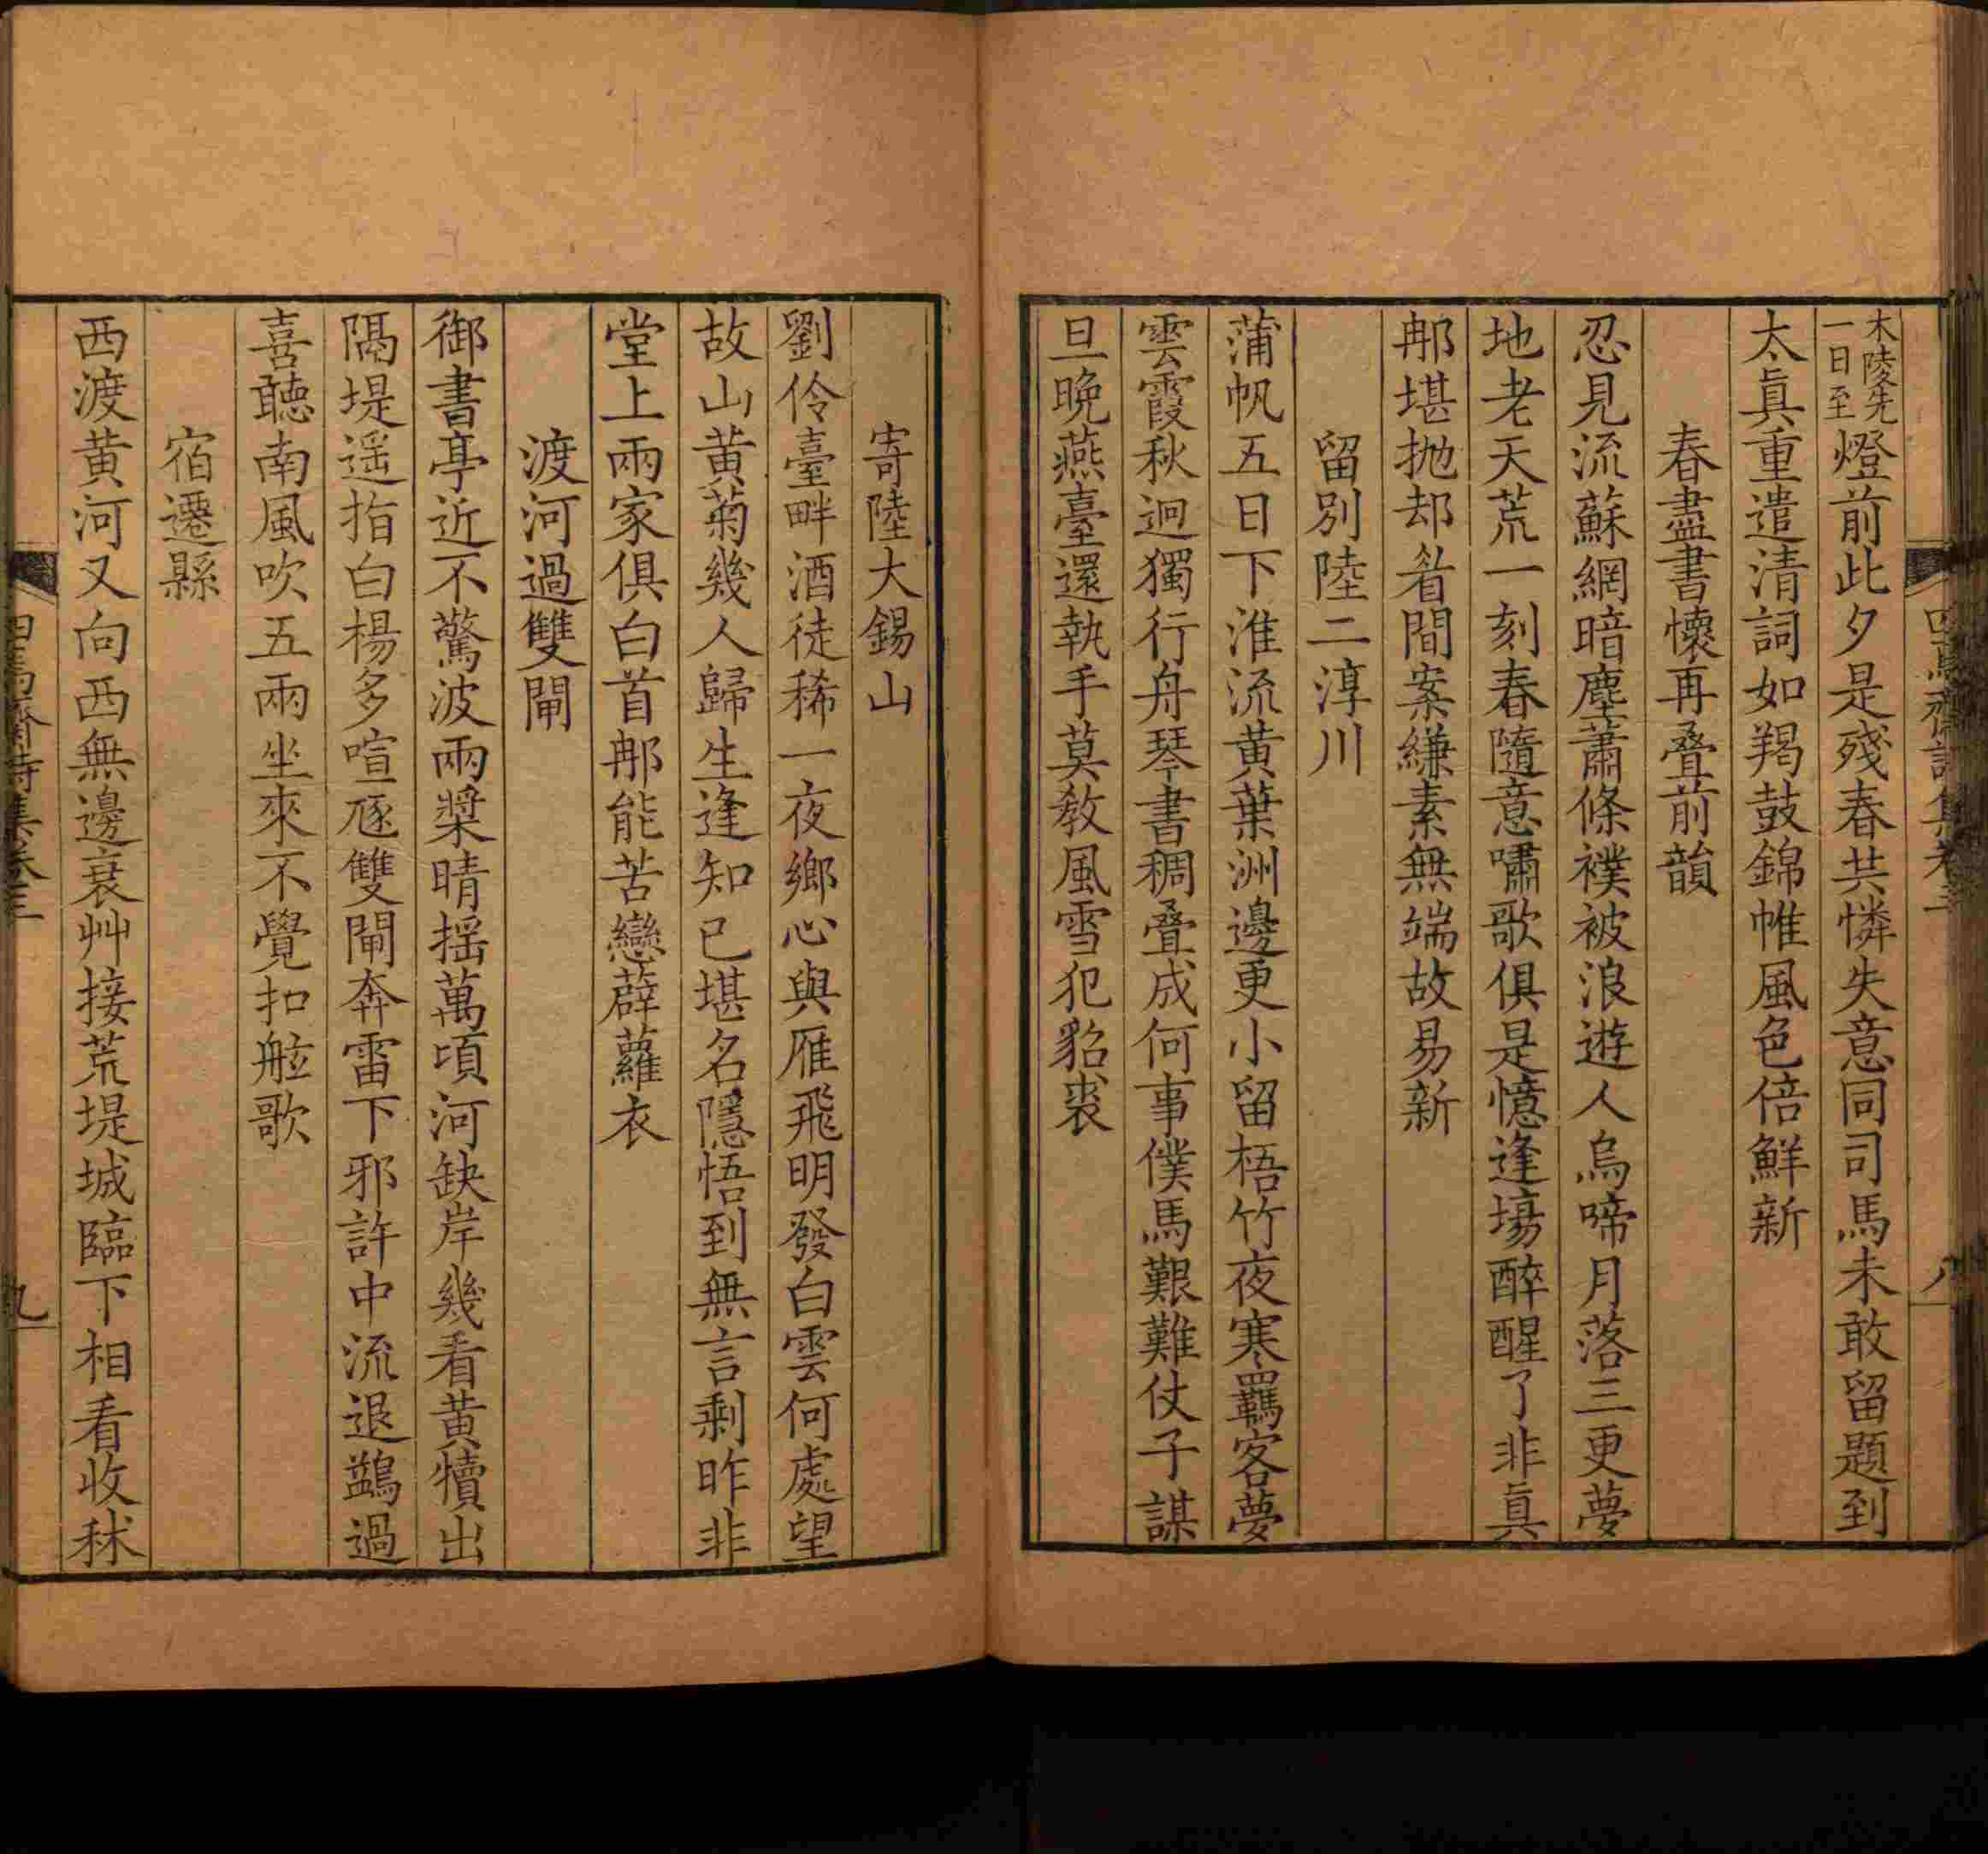 木陵先
一日至
燈前此夕是殘春共憐失意同司馬未敢留題到
太眞重遣清詞如羯鼓錦帷風色倍鮮新
春盡書懷再疊前韻
忍見流蘇網暗塵蕭條襆被浪遊人烏啼月落三更夢
地老天荒一刻春隨意嘯歌俱是憶逢塲醉醒了非眞
那堪拋却笤間案縑素無端故易新
留別陸二淳川
蒲帆五日下淮流黃葉洲邊更小留梧竹夜寒羈客夢
雲霞秋迥獨行舟琴書稠疊成何事僕馬艱難仗子謀
旦晚燕臺還執手莫敎風雪犯貂裘
寄陸大錫山
劉伶臺畔酒徒稀一夜鄉心與雁飛明發白雲何處望
故山黃菊幾人歸生逢知已堪名隱悟到無言剩昨非
堂上兩家俱白首那能苦戀薜蘿衣
渡河過雙閘
御書亭近不驚波兩槳晴搖萬頃河缺岸幾看黃犢出
隔堤遥指白楊多喧豗雙閘奔雷下邪許中流退鷁過
喜聽南風吹五兩坐來不覺扣舷歌
宿遷縣
西渡黃河又向西無邊衰艸接荒堤城臨下相看收秫